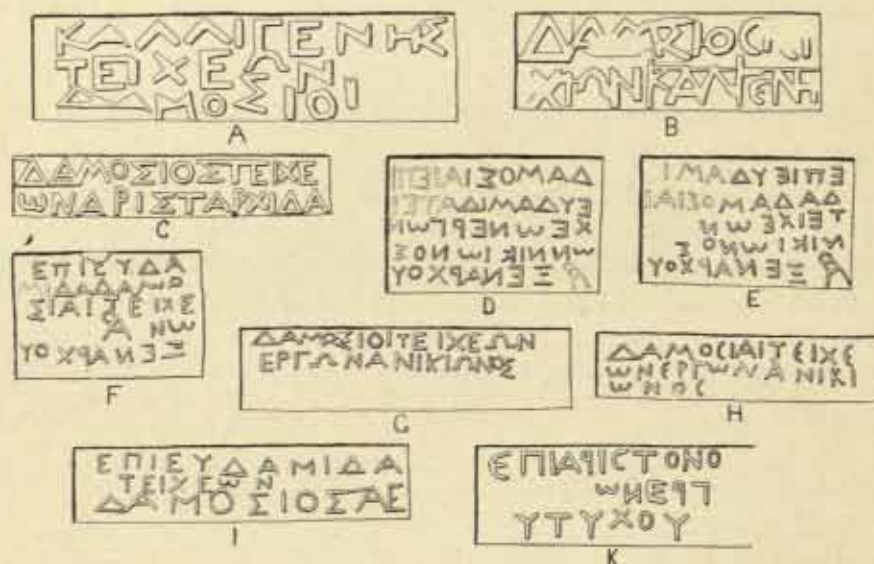 ΚΑΛΛΙΓΕΝΗΣ
ΤΕΙΧΕΩΝ
ΔΑΜΟΣΙΟΙ
A
ΧΙΩΝΚΑΛΙΓΕΝΗ
B
ΔΑΜΟΣΙΟΣΤΕΙΧΕ
ωΝΑΡΙΣΤΑΡΧΙΔΑ
C
ΔΑΜΟΣΙΑΙΕΠΙ
ΕΥΔΑΜΙΔΑΤΕΙ
ΧΕωΝΕΡΓωΝ
ωΝΝΙΚΙωΝΟΣ
ΞΕΝΑΡΧΟΥ
D
ΕΠΙΕΥΔΑΜΙ
ΔΑΔΑΜΟΣΙΑΙ
ΤΕΙΧΕωΝ
ΝΙΚΙωΝΟΣ
ΞΕΝΑΡΧΟΥ
E
ΕΠΙΕΥΔΑ
ΜΙΔΑΔΑΜΟ
ΣΙΑΙΤΕΙΧΕ
ωΝ Α
ΞΕΝΑΡΧΟΥ
F
ΔΑΜΟΣΙΟΙΤΕΙΧΕΩΝ
ΕΡΓΩΝΑΝΙΚΙΩΝΟΣ
G
ΔΑΜΟϹΙΑΙΤΕΙΧΕ
ωΝΕΡΓωΝΑΝΙΚΙ
ωΝΟϹ
H
ΕΠΙΕΥΔΑΜΙΔΑ
ΤΕΙΧΕωΝ
ΔΑΜΟΣΙΟΣΑΕ
I
ΕΠΙΑΡΙϹΤΟΝΟ
ΥΤΥΧΟΥ
K